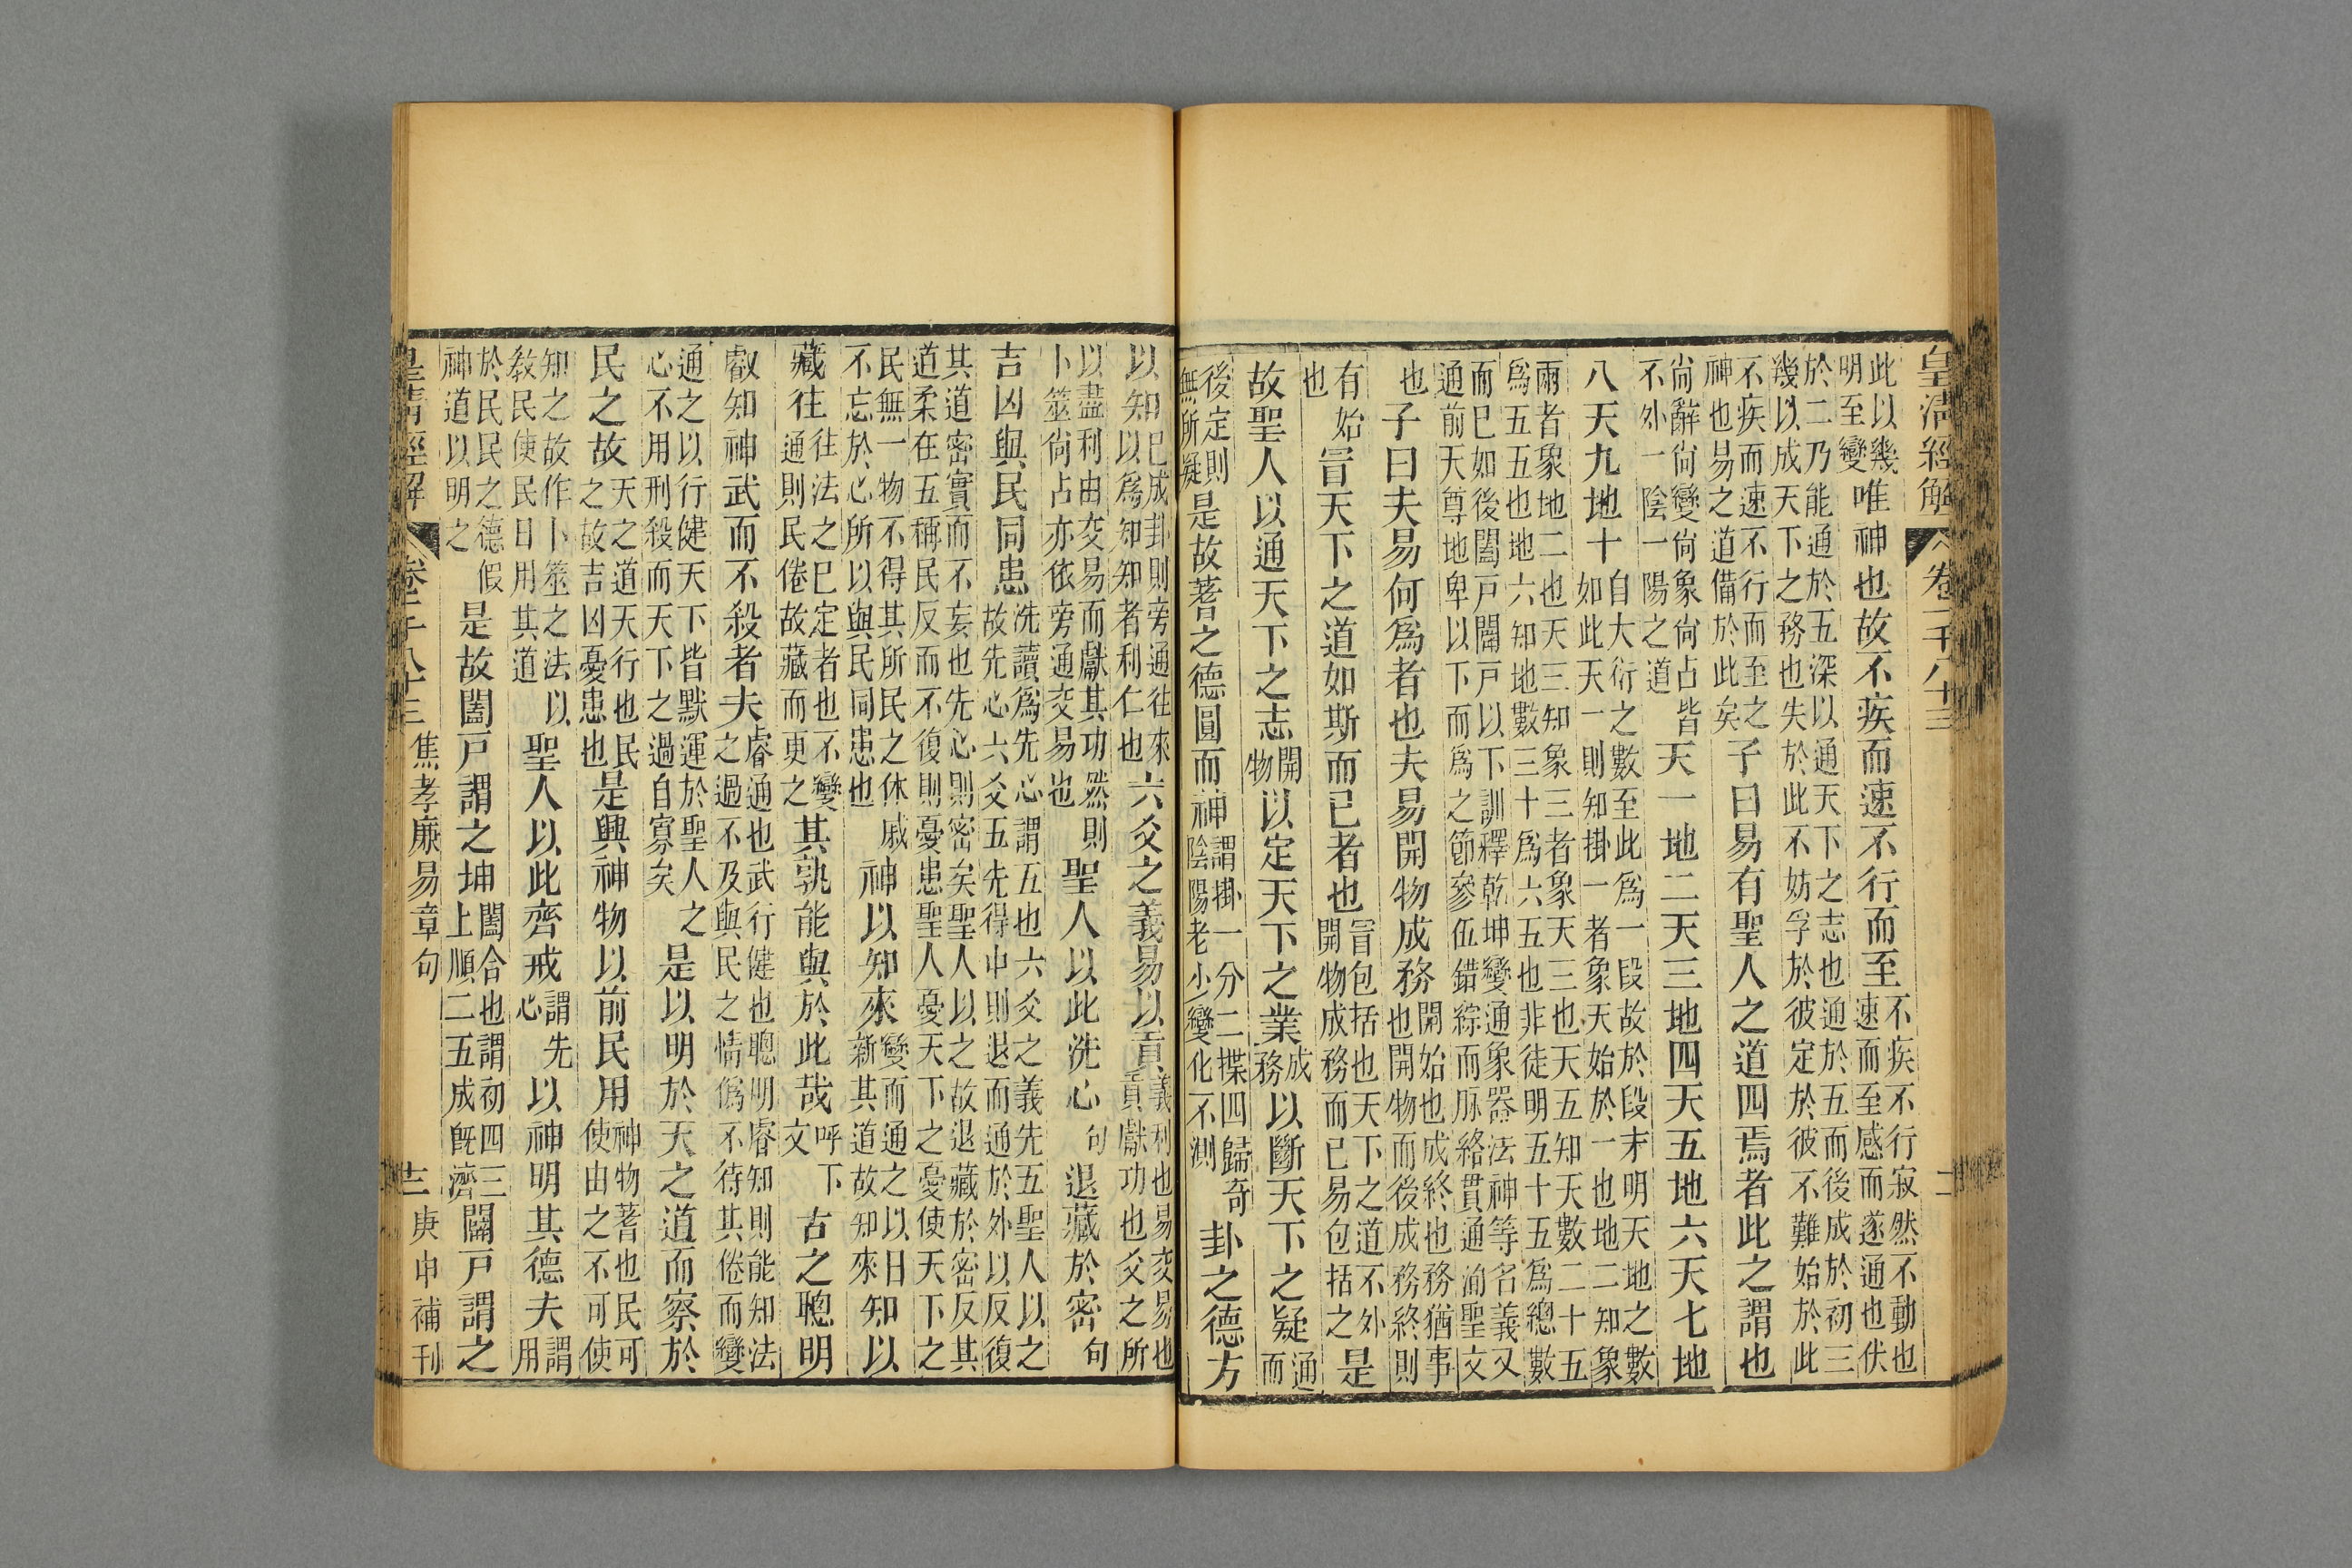 皇清經解 卷一千八十三 十一
此以幾明至變唯神也故不疾而速不行而至不疾不行寂然不動也速而至感而遂通也伏
於二乃能通於五深以通天下之志也通於五而後成於初三幾以成天下之務也失於此不妨孚於彼定於彼不難始於此
不疾而速不行而至之神也易之道備於此矣子曰易有聖人之道四焉者此之謂也
尚辭尚變尚象尚占皆不外一陰一陽之道天一地二天三地四天五地六天七地
八天九地十自大衍之數至此爲一段故於段末明天地之數如此天一則知掛一者象天始於一也地二知象
兩者象地二也天三知象三者象天三也天五知天數二十五爲五五也地六知地數三十爲六五也非徒明五十五爲總數
而已如後闔戸闢戸以下訓釋乾坤變通象器法神等名義又通前天尊地卑以下而爲之節參伍錯綜而脈絡貫通聖文
也子曰夫易何爲者也夫易開物成務開始也成終也務猶事也開物而後成務終則
有始也冒天下之道如斯而已者也冒包括也天下之道不外開物成務而已易包括之是
故聖人以通天下之志開物以定天下之業成務以斷天下之疑通而
後定則無所疑是故蓍之德圓而神謂掛一分二揲四歸奇陰陽老少變化不測卦之德方
以知已成卦則旁通往來以爲知知者利仁也六爻之義易以貢義利也易交易也貢獻功也爻之所
以盡利由交易而獻其功然則卜筮尚占亦依旁通交易也聖人以此洗心句退藏於密句
吉凶與民同患洗讀爲先心謂五也六爻之義先五聖人以之故先心六爻五先得中則退而通於外以反復
其道密實而不妄也先心則密矣聖人以之故退藏於密反其道柔在五稱民反而不復則憂患聖人憂天下之憂使天下之
民無一物不得其所民之休戚不忘於心所以與民同患也神以知來變而通之以日新其道故知來知以
藏往往法之已定者也不變通則民倦故藏而更之其孰能與於此哉呼下文古之聰明
叡知神武而不殺者夫睿通也武行健也聰明睿知則能知法之過不及與民之情僞不待其倦而變
通之以行健天下皆默運於聖人之心不用刑殺而天下之過自寡矣是以明於天之道而察於
民之故天之道天行也民之故吉凶憂患也是興神物以前民用神物蓍也民可使由之不可使
知之故作卜筮之法以教民使民日用其道聖人以此齊戒謂先心以神明其德夫謂用
於民民之德假神道以明之是故闔戸謂之坤闔合也謂初四三上順二五成旣濟闢戸謂之
皇清經解 卷一千八十三 焦孝廉易章句 庚申補刊